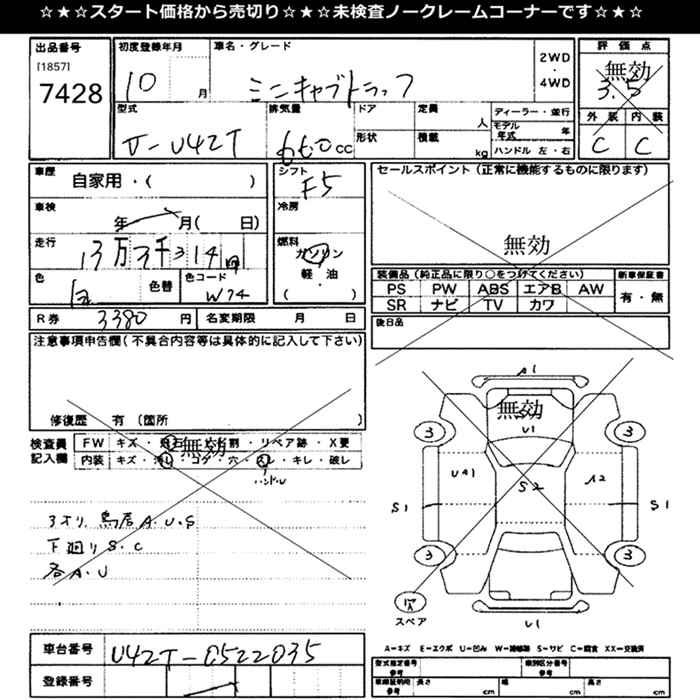 ☆★☆★スタート価格から売切り☆★☆★未検査ノークレームコーナーです☆★☆
出品番号
[1857]
7428
初度登録年月
10 月
車名・グレード
ミニキャブトラック
2WD
・
4WD
評価点
無効
3.5
外装 内装
C C
型式
V-U42T
排気量
660cc
ドア
形状
定員
人
積載
kg
ディーラー・並行
モデル年式 年
ハンドル 左・右
車歴
自家用・( )
シフト
F5
セールスポイント(正常に機能するものに限ります)
無効
車検
年 月( 日)
冷房
走行
13万3千314
燃料
ガソリン
軽・油
( )
色
白
色替
色コード
W74
装備品(純正品に限り○をつけてください)
PS PW ABS エアB AW
SR ナビ TV カワ
新車保証書
有・無
R券 3380 円
名変期限 月 日
後日品
注意事項申告欄(不具合内容等は具体的に記入して下さい)
修復歴 有(箇所 )
無効
検査員
記入欄
FW キズ・飛石・ヒビ割・リペア跡・X要
内装 キズ・汚れ・コゲ・穴・スレ・キレ・破し
無効
ハンドル
鳥居A.U.S
下廻りS.C
各A.U
A1
U1
3 3
U41
S2
A2
S1 S1
3 3
スペア
U1
A=キズ E=エクボ U=凹み W=補修跡 S=サビ C=腐食 XX=交換済
車台番号
U42T-0522035
登録番号
型式指定番号
参考
類別区分番号
参考
車検証明細
参考
長さ cm
幅 cm
高さ cm